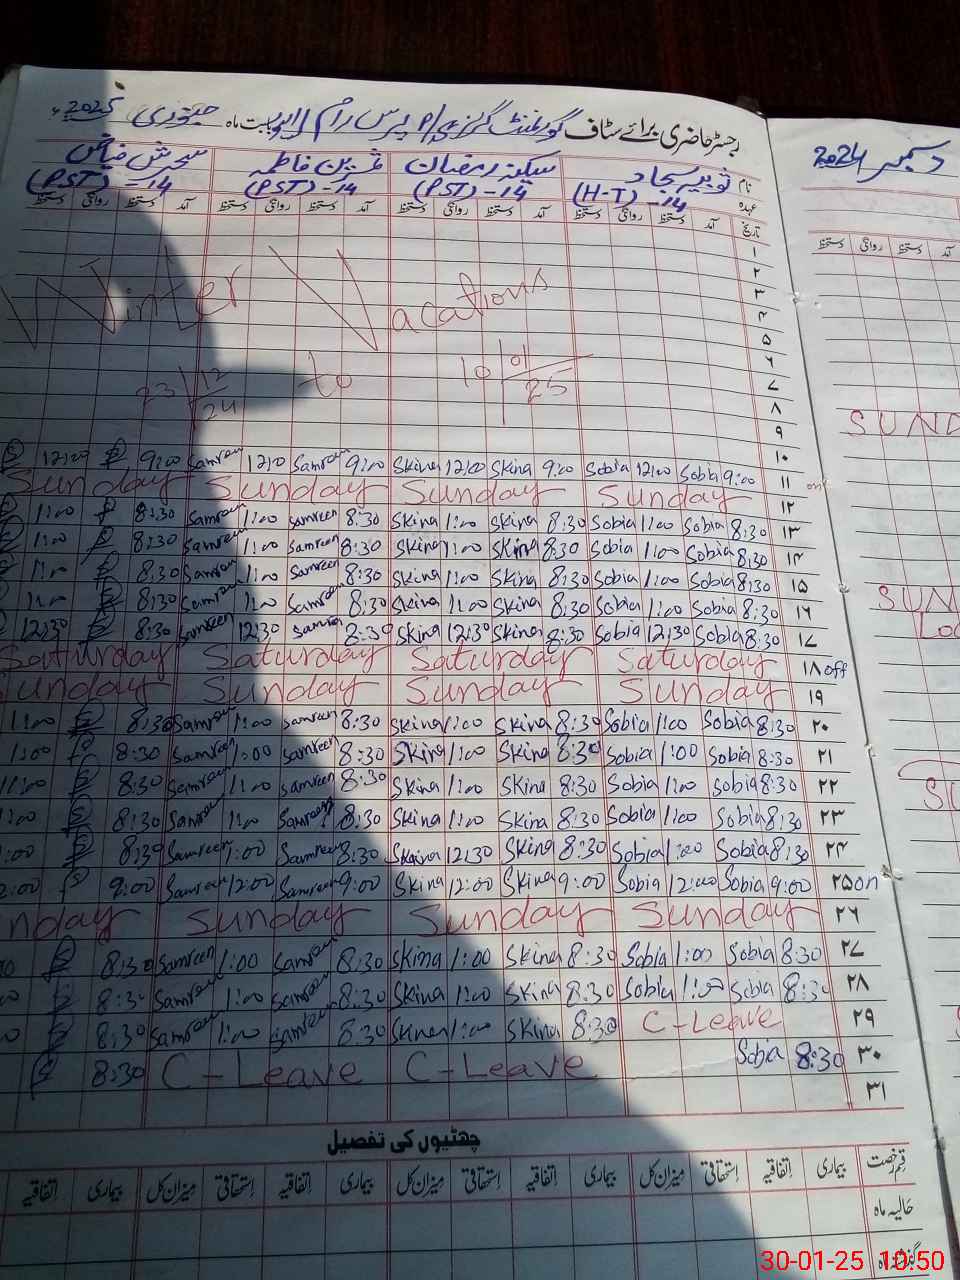 رجسٹر حاضری برائے سٹاف گورنمنٹ گرلز پرس رام بابت ماہ جنوری 2025ء
دسمبر 2024
نام تنویر سجاد سکینہ رمضان ثمرین فاطمہ سحرش فیاض
عہدہ (H-T) - 14 (PST) - 14 (PST) - 14 (PST) - 14
تاریخ آمد دستخط روانگی دستخط آمد دستخط روانگی دستخط آمد دستخط روانگی دستخط آمد دستخط روانگی دستخط
آمد دستخط روانگی دستخط
۱
۲
۳
۴
۵
۶
۷
۸
۹
Winter Vacations
23/12/24 to 10/01/25
۱۰
12:00 9:00 Samreen 12:00 Samreen 9:00 Skina 12:00 Skina 9:00 Sobia 12:00 Sobia 9:00 ۱۱ on
Sunday Sunday Sunday Sunday ۱۲
1:00 8:30 Samreen 1:00 Samreen 8:30 Skina 1:00 Skina 8:30 Sobia 1:00 Sobia 8:30 ۱۳
1:00 8:30 Samreen 1:00 Samreen 8:30 Skina 1:00 Skina 8:30 Sobia 1:00 Sobia 8:30 ۱۴
1:00 8:30 Samreen 1:00 Samreen 8:30 Skina 1:00 Skina 8:30 Sobia 1:00 Sobia 8:30 ۱۵
1:00 8:30 Samreen 1:00 Samreen 8:30 Skina 1:00 Skina 8:30 Sobia 1:00 Sobia 8:30 ۱۶
12:30 8:30 Samreen 12:30 Samreen 8:30 Skina 12:30 Skina 8:30 Sobia 12:30 Sobia 8:30 ۱۷
Saturday Saturday Saturday Saturday ۱۸ off
Sunday Sunday Sunday Sunday ۱۹
1:00 8:30 Samreen 1:00 Samreen 8:30 Skina 1:00 Skina 8:30 Sobia 1:00 Sobia 8:30 ۲۰
1:00 8:30 Samreen 1:00 Samreen 8:30 Skina 1:00 Skina 8:30 Sobia 1:00 Sobia 8:30 ۲۱
1:00 8:30 Samreen 1:00 Samreen 8:30 Skina 1:00 Skina 8:30 Sobia 1:00 Sobia 8:30 ۲۲
1:00 8:30 Samreen 1:00 Samreen 8:30 Skina 1:00 Skina 8:30 Sobia 1:00 Sobia 8:30 ۲۳
:00 8:30 Samreen 1:00 Samreen 8:30 Skina 12:30 Skina 8:30 Sobia 1:00 Sobia 8:30 ۲۴
2:00 9:00 Samreen 12:00 Samreen 9:00 Skina 12:00 Skina 9:00 Sobia 12:00 Sobia 9:00 ۲۵ on
nday Sunday Sunday Sunday ۲۶
00 8:30 Samreen 1:00 Samreen 8:30 Skina 1:00 Skina 8:30 Sobia 1:00 Sobia 8:30 ۲۷
8:30 Samreen 1:00 Samreen 8:30 Skina 1:00 Skina 8:30 Sobia 1:00 Sobia 8:30 ۲۸
8:30 Samreen 1:00 Samreen 8:30 Skina 1:00 Skina 8:30 C-Leave ۲۹
8:30 C-Leave C-Leave Sobia 8:30 ۳۰
۳۱
چھٹیوں کی تفصیل
قسم رخصت بیماری اتفاقیہ استحقاقی میزان کل بیماری اتفاقیہ استحقاقی میزان کل بیماری اتفاقیہ استحقاقی میزان کل بیماری اتفاقیہ
حالیہ ماہ
گزشتہ ماہ
SUND
SUN
SU
30-01-25 10:50